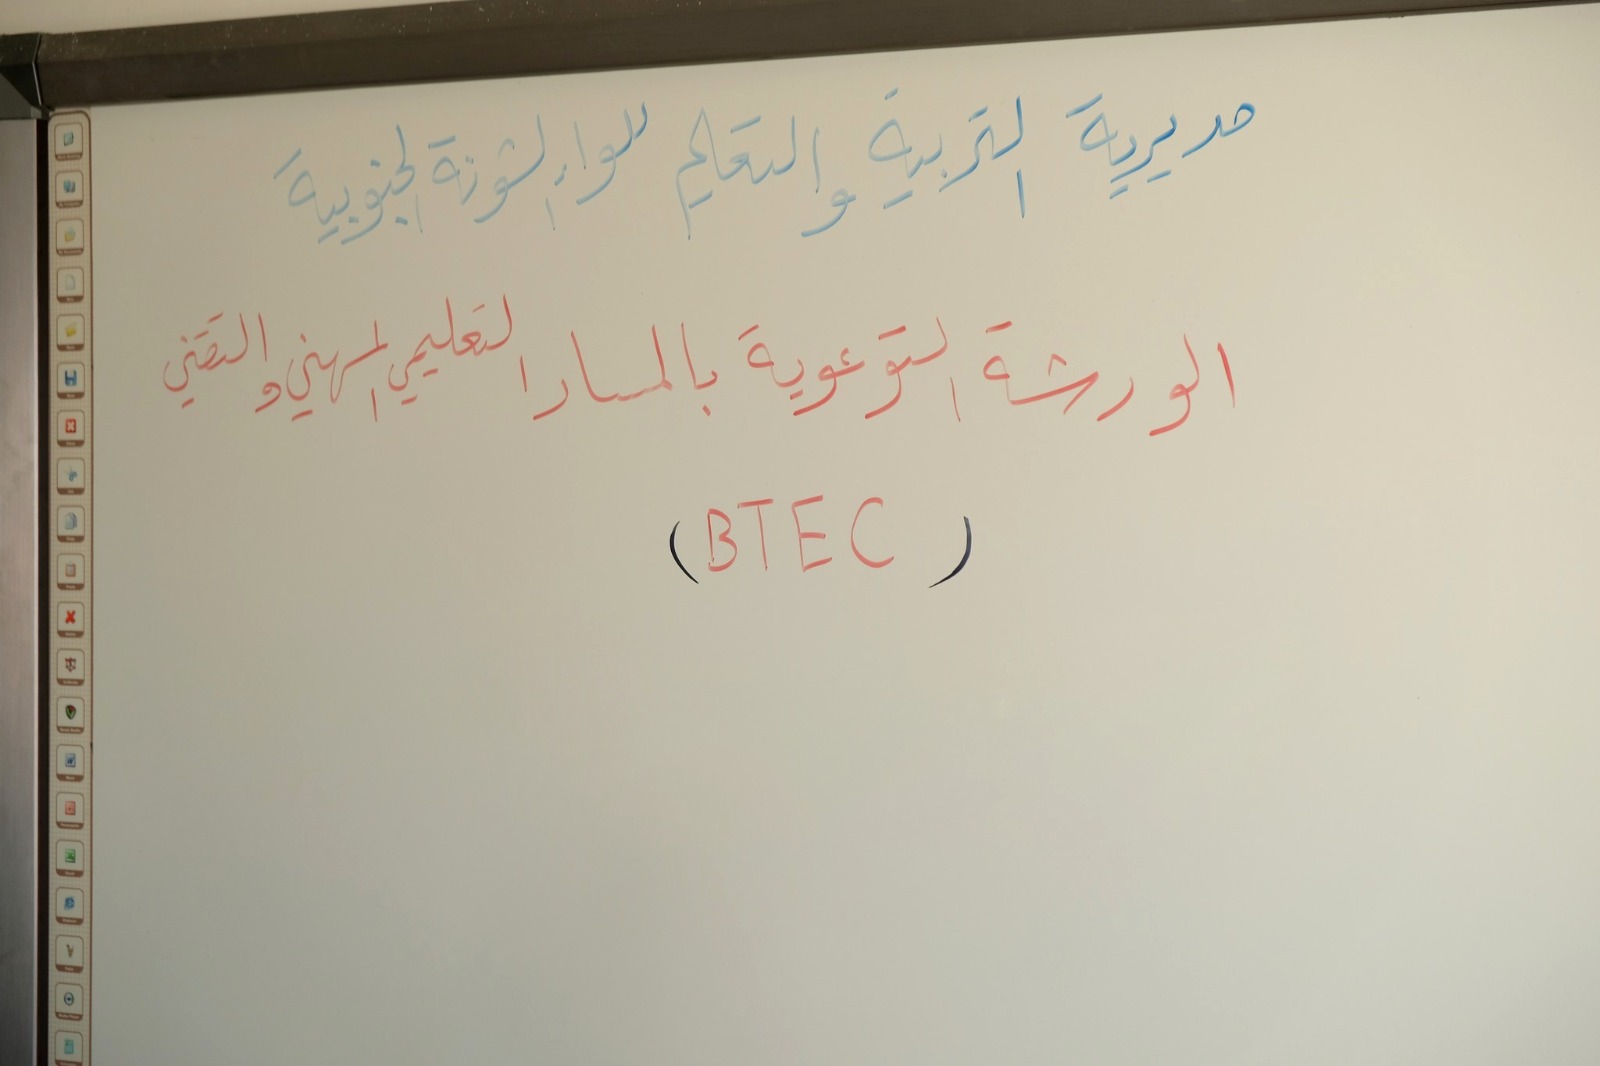 مديرية التربية والتعليم للواء الشونة الجنوبية
الورشة التوعوية بالمسار التعليمي المهني والتقني
(BTEC)